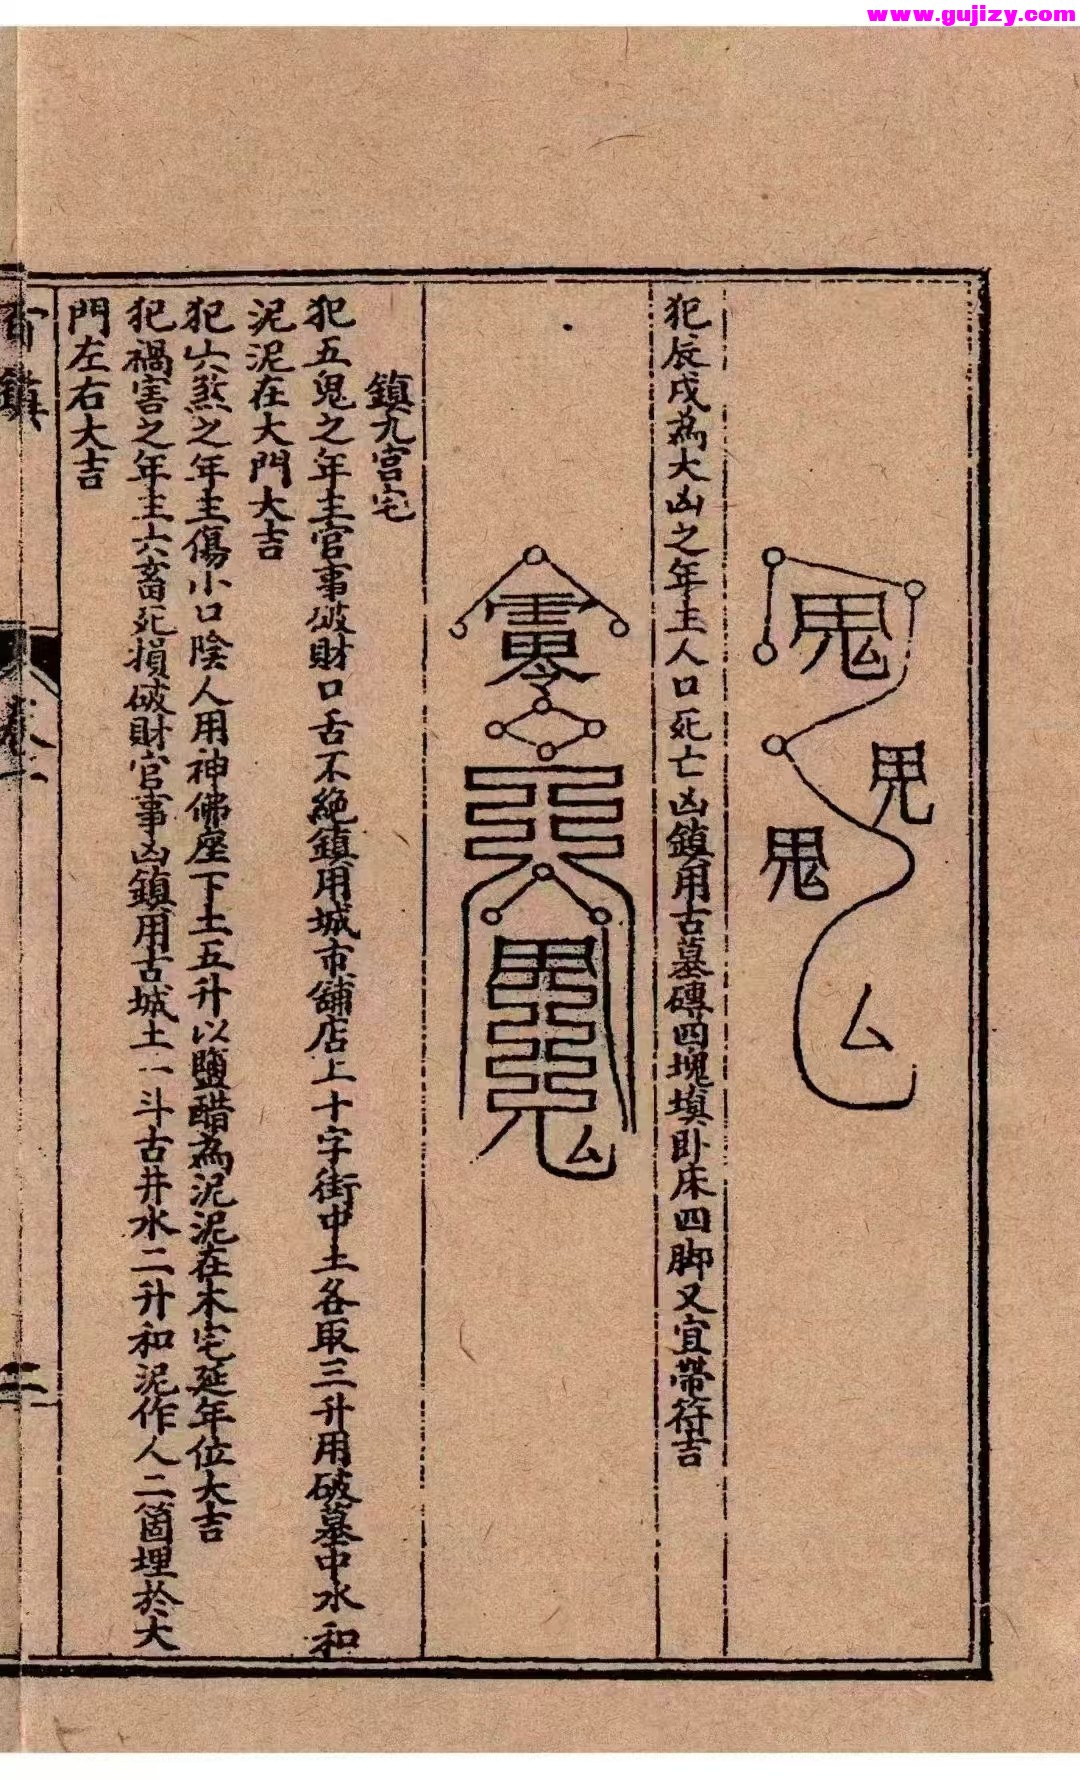 www.gujizy.com
犯辰戌為大凶之年主人口死亡凶鎮用古墓磚四塊填卧床四脚又宜帶符吉
鎮九宮宅
犯五鬼之年主官事破財口舌不絕鎮用城市舖店上十字街中土各取三升用破墓中水和
泥泥在大門大吉
犯六煞之年主傷小口陰人用神佛座下土五升以鹽醋為泥泥在本宅延年位大吉
犯禍害之年主六畜死損破財官事凶鎮用古城土一斗古井水二升和泥作人二箇埋於大
門左右大吉